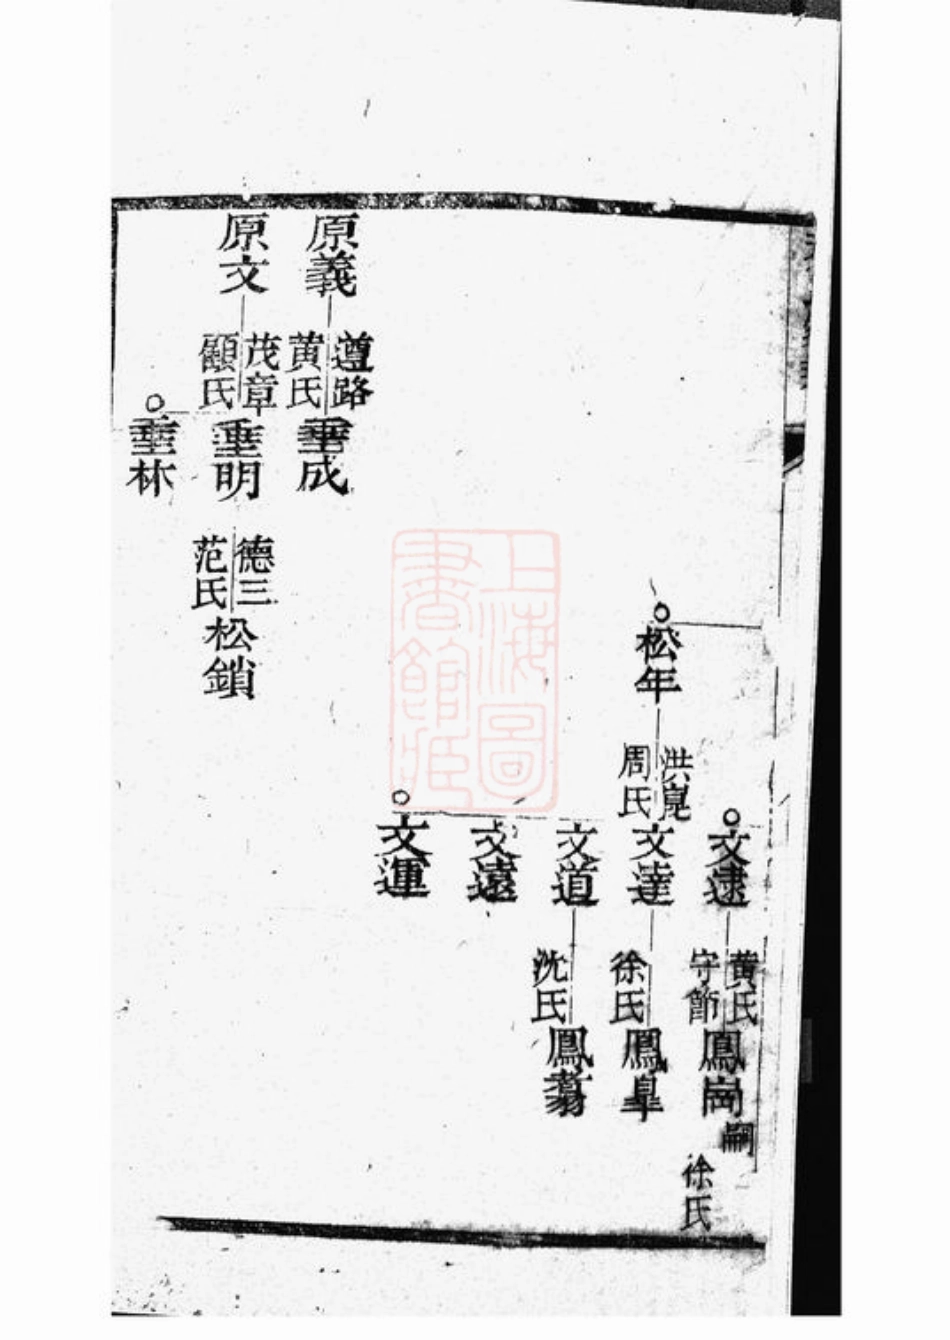 文逮
黃氏
守節
鳳崗
嗣
徐氏
松年
洪
周氏
文達
徐氏
鳳皐
文道
沈氏
鳳翥
文遠
文運
上海圖
書館藏
原義
遵路
黃氏
重成
原文
茂章
顧氏
重明
德三
范氏
松鎖
重林